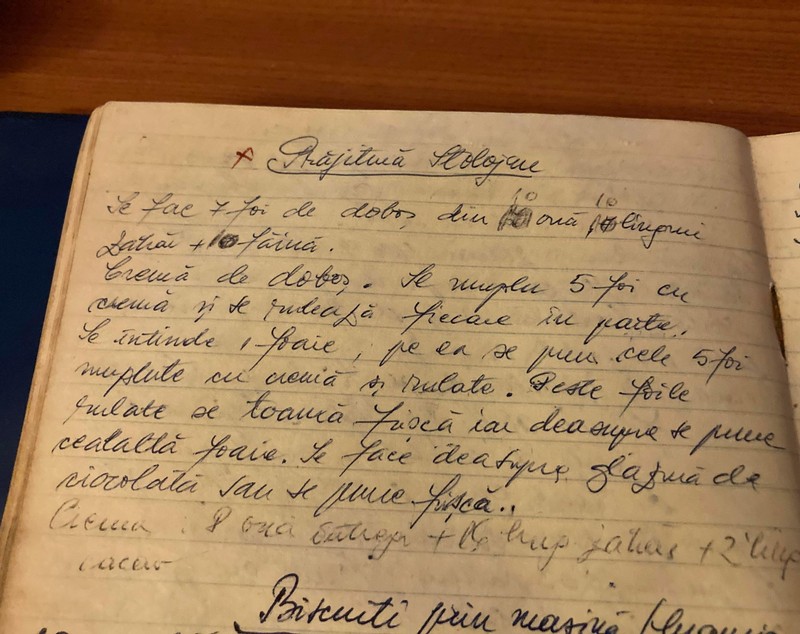 x Prăjitură Stolojan
Se fac 7 foi de doboș din 10 ouă 10 linguri
zahăr + 10 făină.
Cremă de doboș. Se umplu 5 foi cu
cremă și se rulează fiecare în parte.
Se întinde 1 foaie, pe ea se pun cele 5 foi
umplute cu cremă și rulate. Peste foile
rulate se toarnă frișcă iar deasupra se pune
cealaltă foaie. Se face deasupra glazură de
ciocolată sau se pune frișcă..
Crema : 8 ouă întregi + 16 ling zahăr + 2 ling
cacao
Biscuiți prin mașină